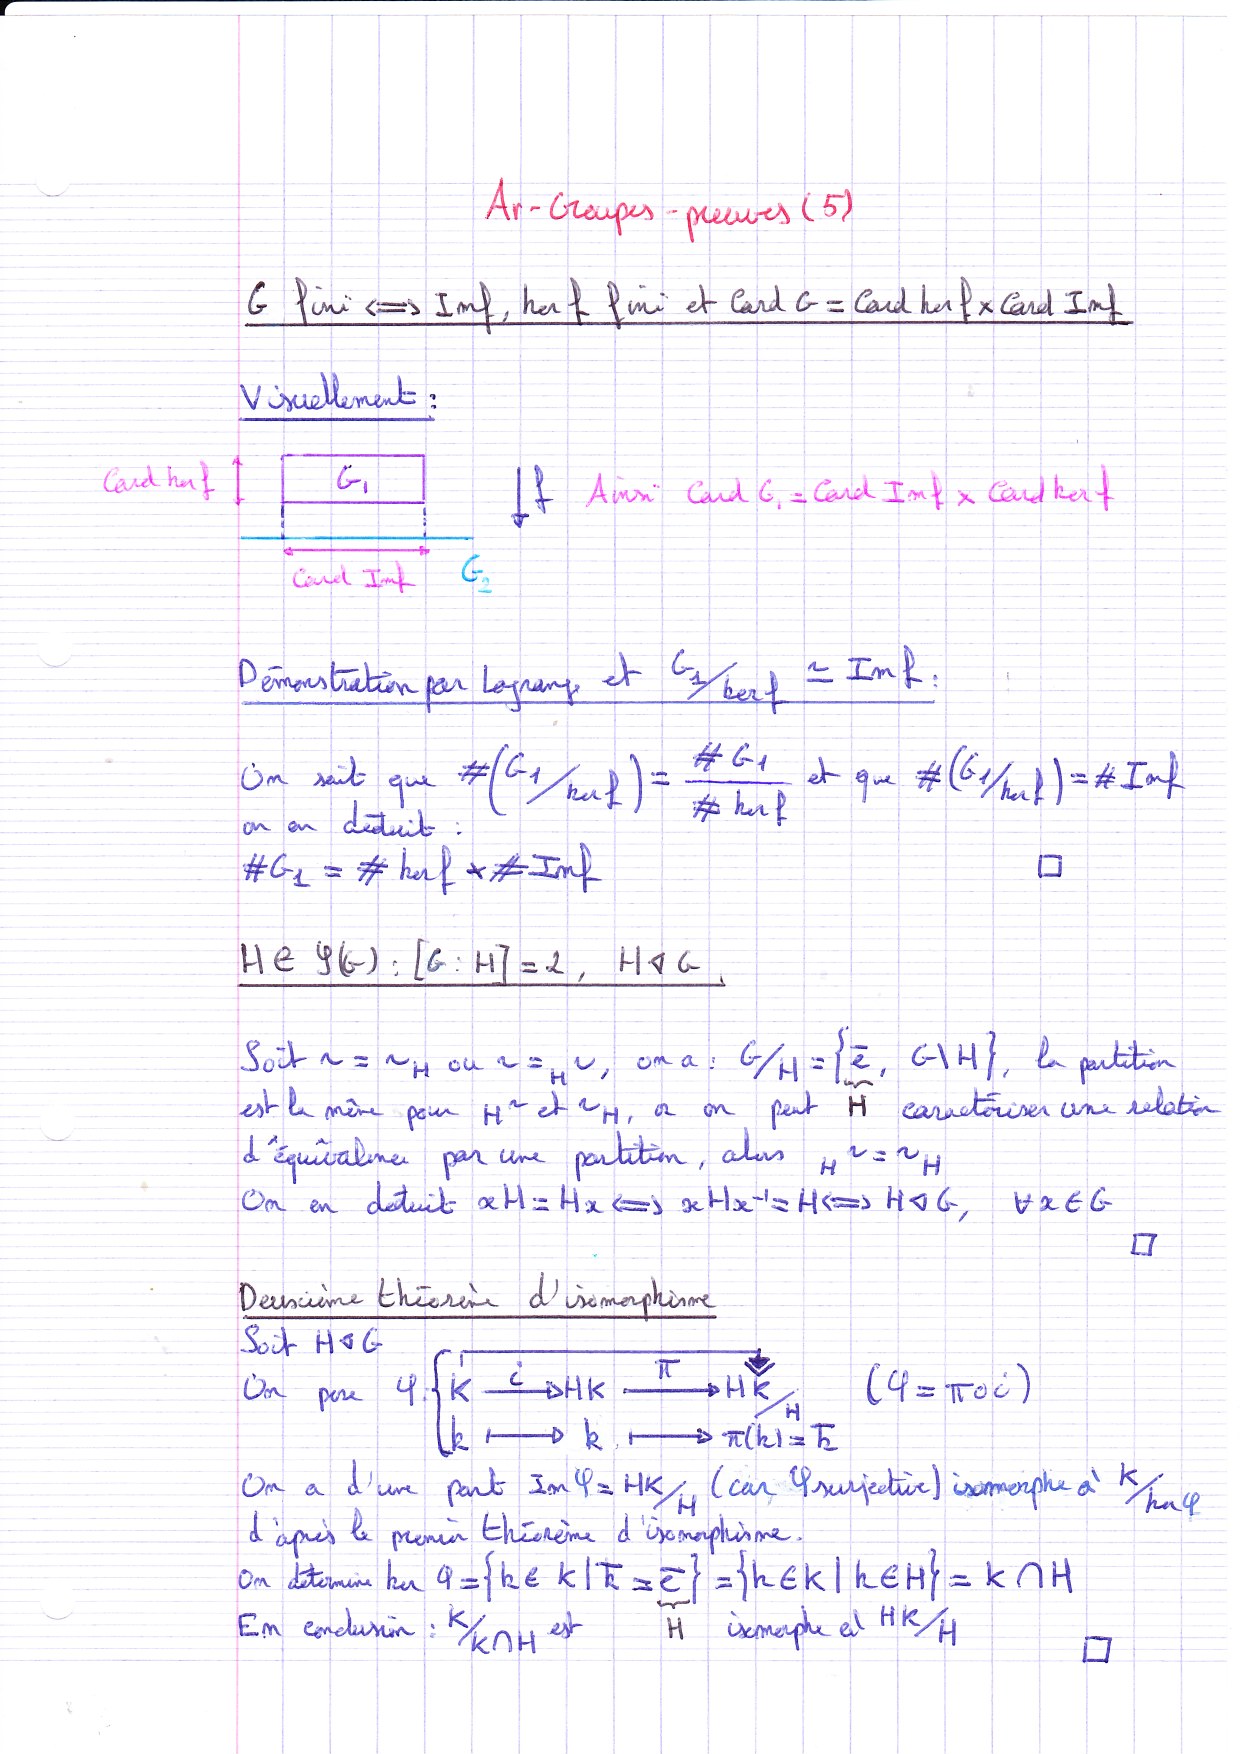 Ar-Groupes-preuves (5)
G fini ⟺ Imf, ker f fini et Card G = Card ker f × Card Imf
Visuellement :
Card ker f G₁ ↓ f Ainsi Card G₁ = Card Imf × Card ker f
Card Imf G₂
Démonstration par Lagrange et G₁/ker f ≃ Imf :
On sait que #(G₁/ker f) = #G₁ / #ker f et que #(G₁/ker f) = #Imf
on en déduit :
#G₁ = #ker f × #Imf □
H ∈ 𝒮(G) : [G : H] = 2, H ◁ G.
Soit ~ = ~_H ou ~ = _H~, on a : G/H = {ē, G\H}, la partition
est la même pour _H~ et ~_H, or on peut H caractériser une relation
d'équivalence par une partition, alors _H~ = ~_H
On en déduit xH = Hx ⟺ xHx⁻¹ = H ⟺ H ◁ G, ∀x ∈ G
□
Deuxième théorème d'isomorphisme
Soit H ◁ G
On pose φ : { K —i→ HK —π→ HK/H (φ = π∘i)
k ↦ k ↦ π(k) = k̄
On a d'une part Im φ = HK/H (car φ surjective) isomorphe à K/ker φ
d'après le premier théorème d'isomorphisme.
On détermine ker φ = {k ∈ K | k̄ = ē} = {k ∈ K | k ∈ H} = K ∩ H
En conclusion : K/K∩H est H isomorphe à HK/H
□